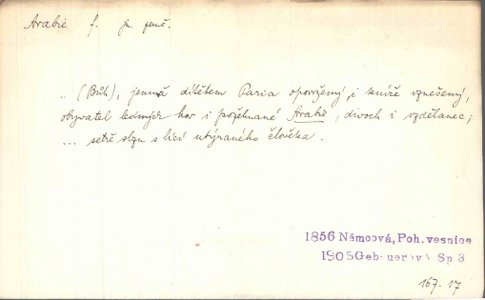 Arabie f. jm. země.
.. (Bůh), jemuž dítětem Paria opovržený i kníže vznešený,
obyvatel ledných hor i požehnané Arabie, divoch i vzdělanec;
... setře slzu s lící utýraného člověka.
1856 Němcová, Poh. vesnice
1905 Gebauerová Sp 3
167.17